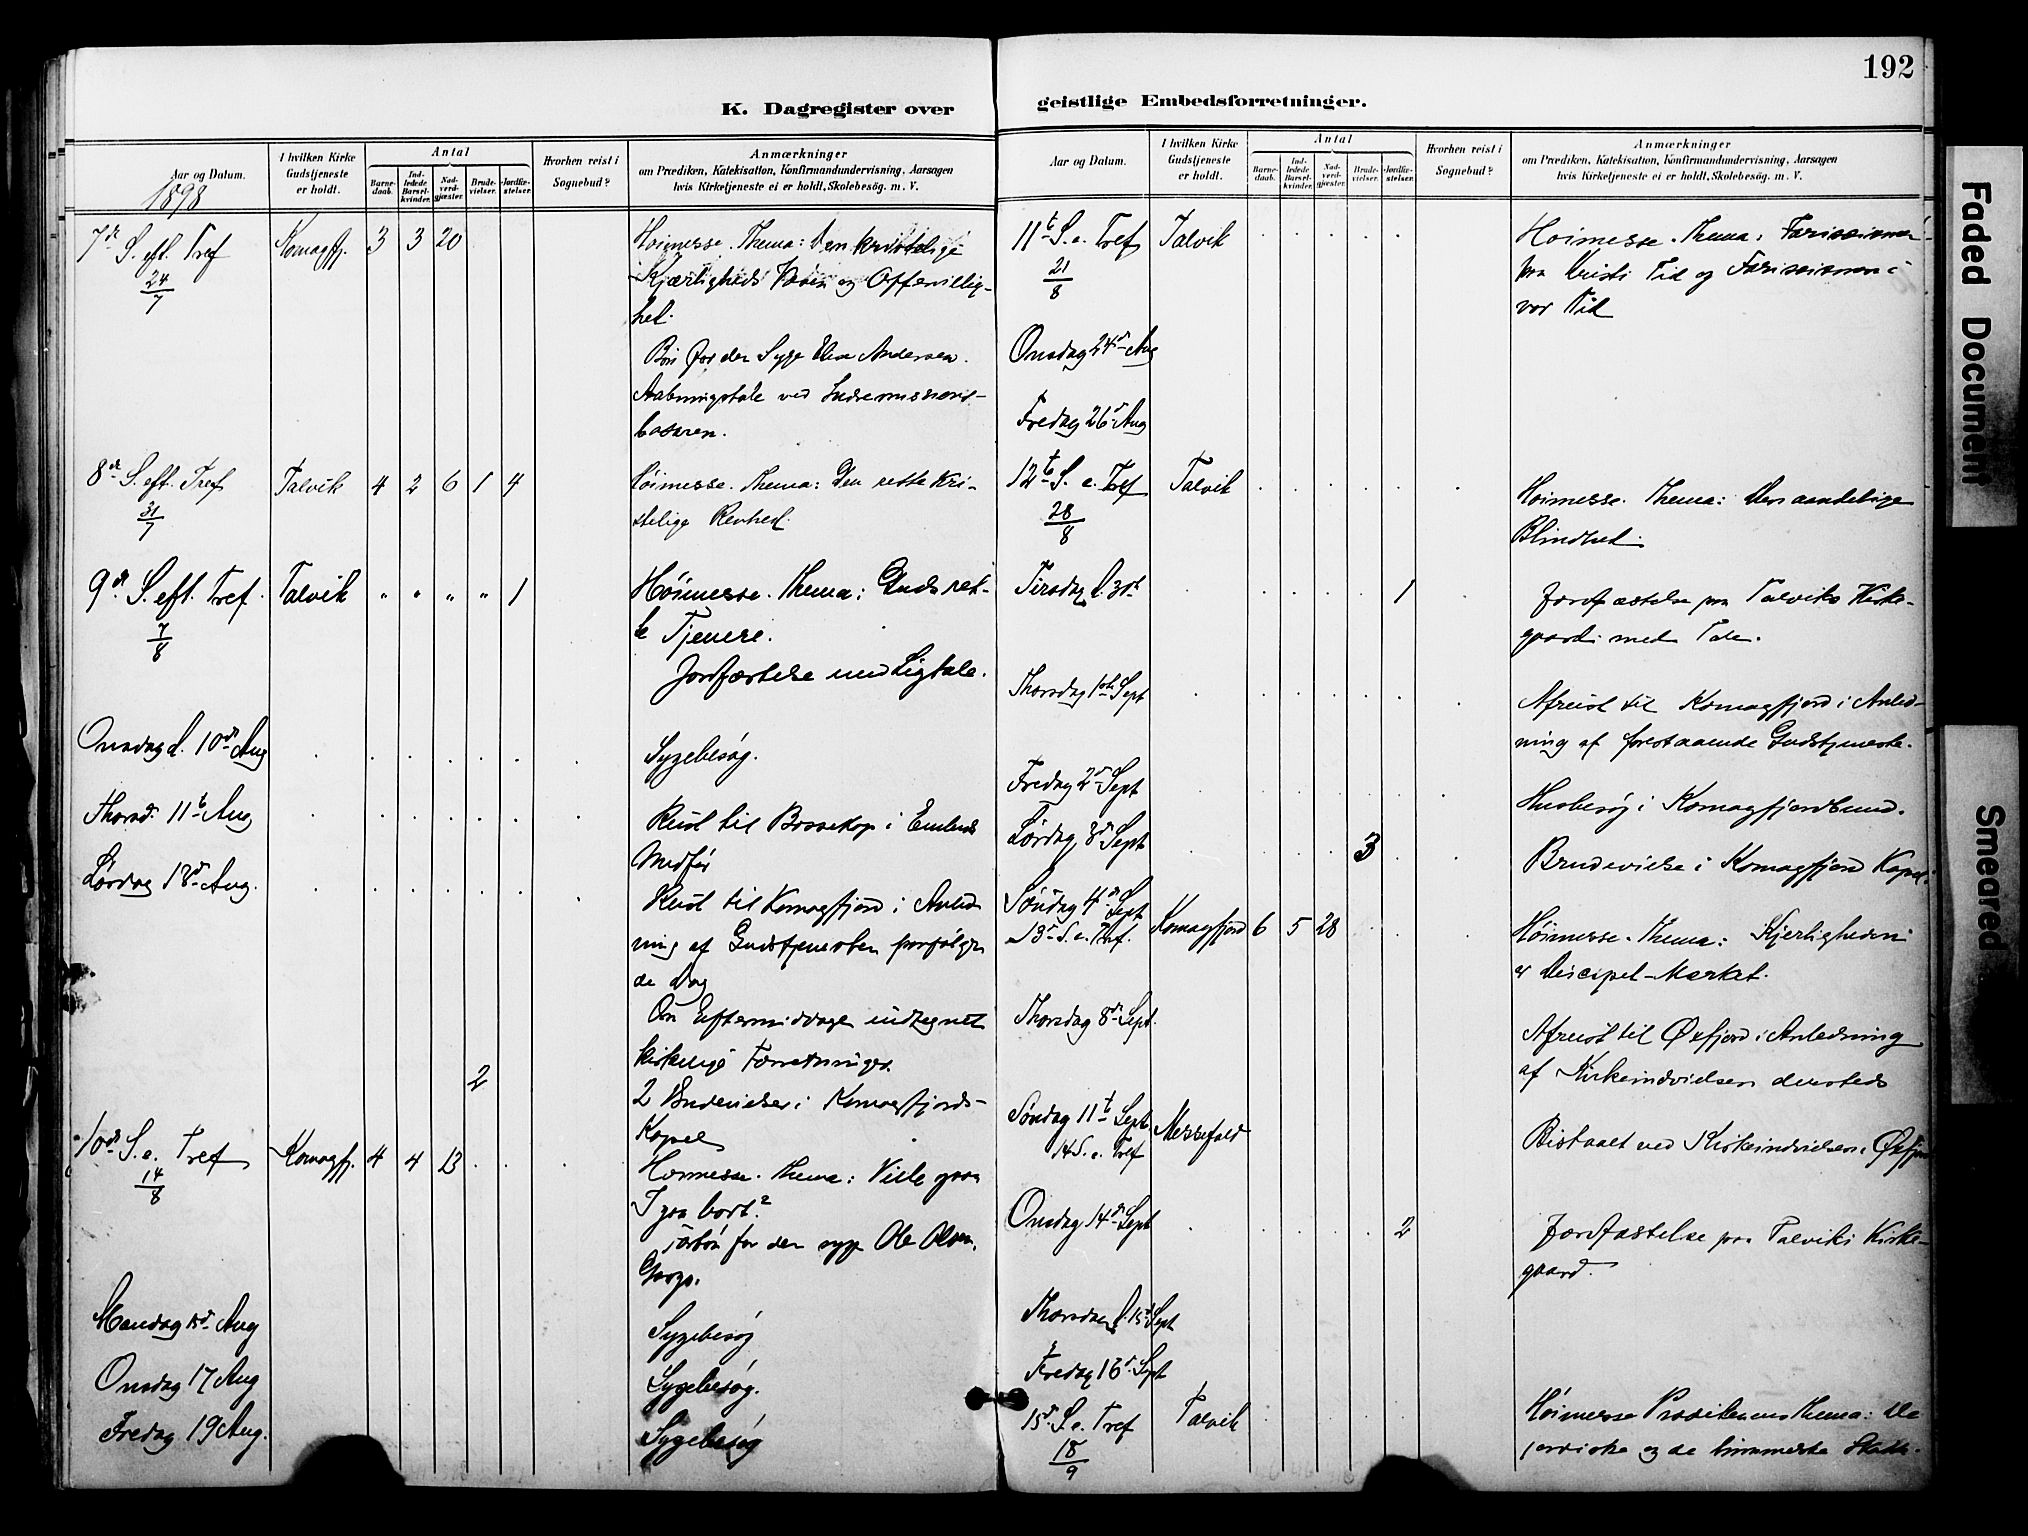 192
K. Dagregister over geistlige Embedsforretninger.
Aar og Datum.
I hvilken Kirke Gudstjeneste er holdt.
Antal
Barnedaab.
Indledede Barselkvinder.
Nadverdgjæster.
Brudevielser.
Jordfæstelser.
Hvorhen reist i Sognebud?
Anmærkninger
om Prædiken, Katekisation, Konfirmandundervisning, Aarsagen
hvis Kirketjeneste ei er holdt, Skolebesög. m. V.
1898
7de S. eft. Tref Komagfj. 3 3 20 Høimesse. Thema: Den kristelige
24/7 Kjærligheds Væsen og Offervillig-
hed.
Bøn for den Syge Elen Andersen.
Aabningstale ved Indremissions-
basaren.
8de S. eft. Tref Talvik 4 2 6 1 4 Høimesse. Thema: Den rette Kri-
31/7 stelige Renhed.
9de S. eft. Tref. Talvik " " " " 1 Høimesse. Thema: Guds ret-
7/8 te Tjenere.
Jordfæstelse med Ligtale.
Onsdag d. 10de Aug Sygebesøg.
Thorsd. 11te Aug Reist til Bossekop i Embeds
Medfør
Lørdag 13de Aug. Reist til Komagfjord i Anled
ning af Gudstjenesten paafølgen
de Dag
Om Eftermiddagen indtegnet
kirkelige Forretninger.
2 2 Brudevielser i Komagfjords-
Kapel
10de S. e. Tref Komagfj. 4 4 13 Høimesse. Thema: Ville ogsaa
14/8 I gaa bort?
Forbøn for den syge Ole Olsen.
Mandag 15de Aug Sygebesøg
Onsdag 17 Aug Sygebesøg.
Fredag 19 Aug. Sygebesøg
Aar og Datum.
I hvilken Kirke Gudstjeneste er holdt.
Antal
Barnedaab.
Indledede Barselkvinder.
Nadverdgjæster.
Brudevielser.
Jordfæstelser.
Hvorhen reist i Sognebud?
Anmærkninger
om Prædiken, Katekisation, Konfirmandundervisning, Aarsagen
hvis Kirketjeneste ei er holdt, Skolebesög. m. V.
11te S. e. Tref Talvik Høimesse. Thema: Farisæismen
21/8 paa Kristi Tid og Farisæismen i
vor Tid
Onsdag 24de Aug
Fredag 26de Aug
12te S. e. Tref Talvik Høimesse. Thema: Den aandelige
28/8 Blindhed.
Tirsdag d. 30te 1 Jordfæstelse paa Talviks Kirke-
gaard med Tale.
Thorsdag 1ste Sept Afreist til Komagfjord i Anled-
ning af forestaaende Gudstjeneste.
Fredag 2de Sept Husbesøg i Komagfjordbund.
Lørdag 3de Sept 3 Brudevielse i Komagfjord Kapel
Søndag 4de Sept
13de S. e. Tref. Komagfjord 6 5 28 Høimesse. Thema: Kjerligheden
er Discipel-Mærket.
Thorsdag 8de Sept. Afreist til Øxfjord i Anledning
af Kirkeindvielsen dersteds
Søndag 11te Sept. Messefald Bistaaet ved Kirkeindvielsen i Øxfjord
14 S. e. Tref
Onsdag 14de Sept 2 Jordfæstelse paa Talviks Kirke-
gaard.
Thorsdag d. 15de Sept
Fredag 16de Sept
15de S. e. Tref Talvik Høimesse Prædikenens Thema: De
18/9 jordiske og de himmelske Skatte.
Faded Document
Smeared